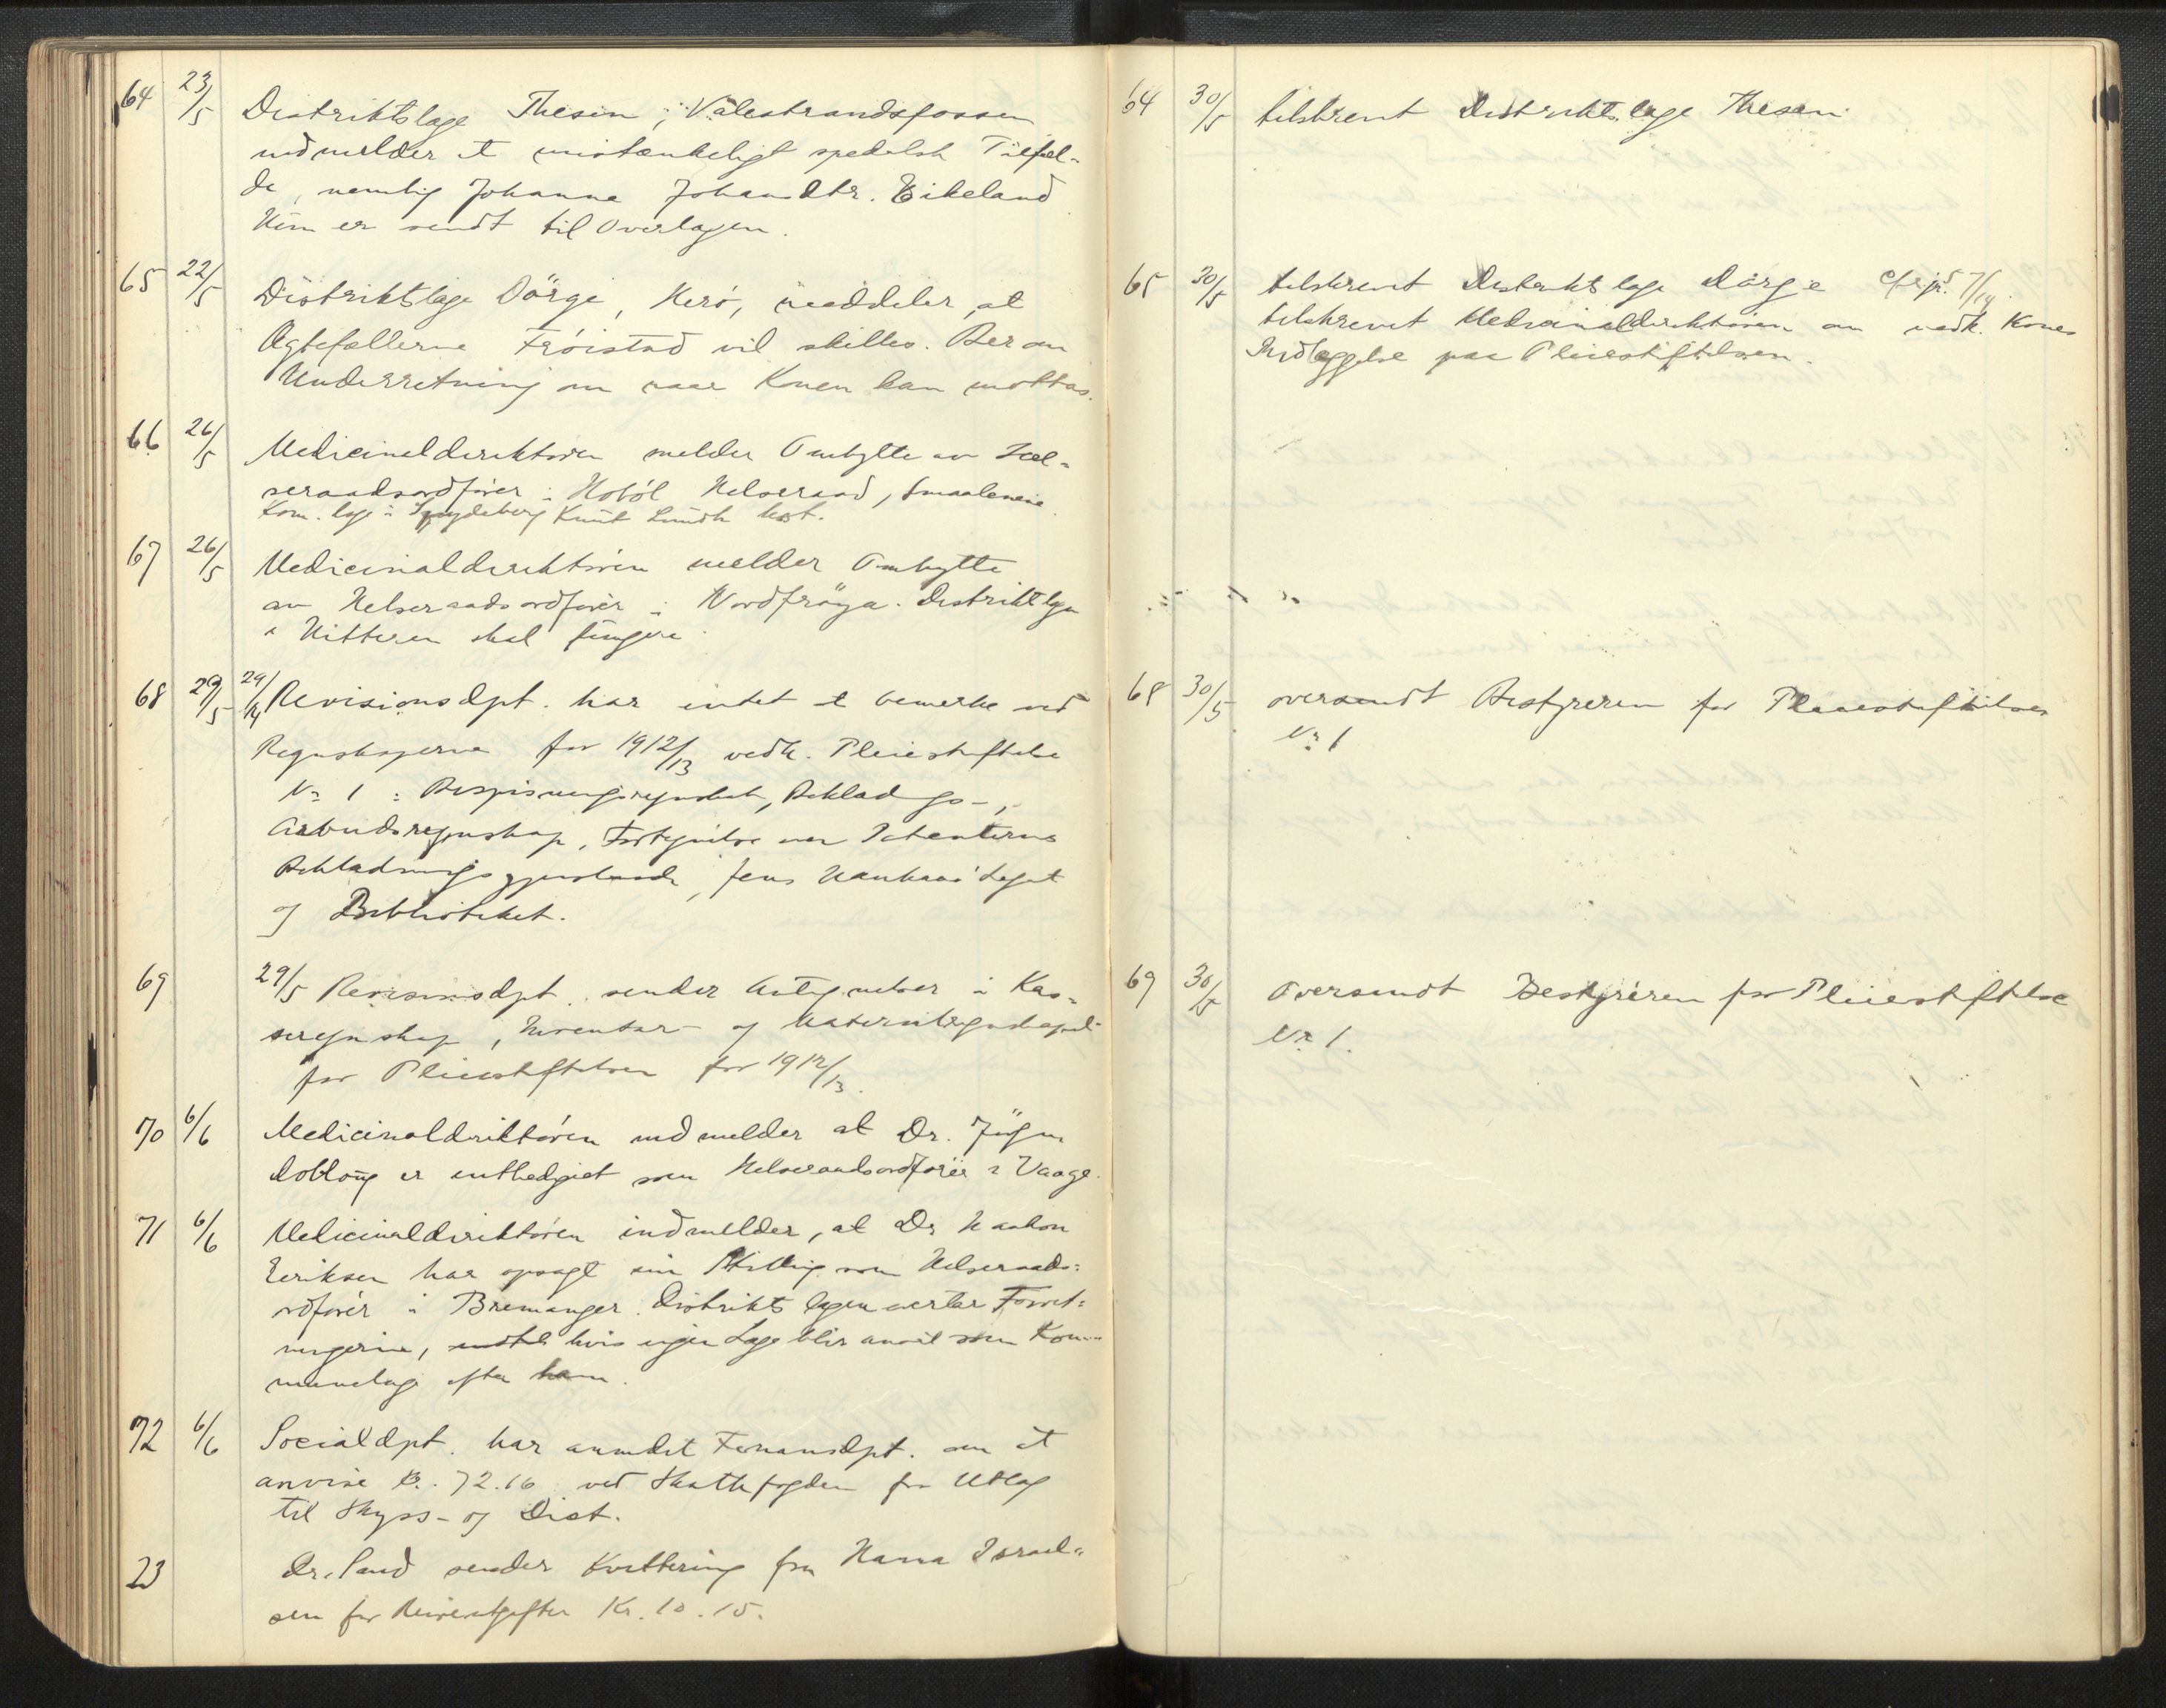 64 23/5 Distriktslæge Thesen i Vålestrandsfossen
indmelder et mistænkeligt spedalsk Tilfæl-
de, nemlig Johanne Johansdtr. Eikeland
Hun er sendt til Overlægen.
65 22/5 Distriktslæge Dörge, Herö, meddeler, at
Ægtefællerne Fröistad vil skilles. Ber om
Underretning om naar Konen kan mottas.
66 26/5 Medicinaldirektören melder Ombytte av Hel-
seraadsordförer i Hoböl Helseraad, Smaalenene.
Kom. læge i Spydeberg Knut Lundh
67 26/5 Medicinaldirektören melder Ombytte
av Helseraadsordförer i Nordfröya. Distriktslægen
i Hitteren skal fungere.
68 29/5 29/4 Revisionsdpt. har intet at bemerke ved
Regnskaperne for 1912/13 vedk. Pleiestiftelse
No 1 : Bespisningsregnskab, Beklædgs-,
Arbeidsregnskap, Fortegnelse over Patienternes
Beklædningsgjenstande, Jens Legat
og Biblioteket.
69 29/5 Revisionsdpt. sender Antegnelser i Kas-
seregnskap, Inventar- og Materialregnskapet
for Pleiestiftelsen for 1912/13.
70 6/6 Medicinaldirektören indmelder at Dr. Jörgen
er entlediget som Helseraadsordförer i Vaage.
71 6/6 Medicinaldirektören indmelder, at Dr Haakon
Eeriksen har opsagt sin Stilling som Helseraads-
ordförer i Bremanger. Distriktslægen overtar Forret-
ningerne, hvis ingen Læge blir ansat som Kom-
munelæge efter ham.
72 6/6 Socialdpt. har anmodet Finansdpt. om at
anvise Kr. 72.16 ved Skattefogden for Utlæg
til Skyss- og Diæt.
23 Dr. Sand sender Kvittering fra Hanna Israel-
sen for Reiseutgifter Kr. 10.15.
64 30/5 tilskrevet Distriktslæge Thesen.
65 30/5 tilskrevet Distriktslæge Dörge cfr. jr. 7/14.
tilskrevet Medicinaldirektören om vedk. Kones
Indlæggelse paa Pleiestiftelsen.
68 30/5 oversendt Bestyreren for Pleiestiftelsen
No 1
69 30/5 Oversendt Bestyreren for Pleiestiftelse
No 1.